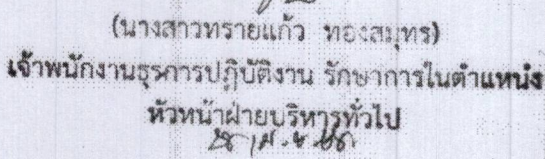 (นางสาวทรายแก้ว ทองสมุทร)
เจ้าพนักงานธุรการปฏิบัติงาน รักษาการในตำแหน่ง
หัวหน้าฝ่ายบริหารทั่วไป